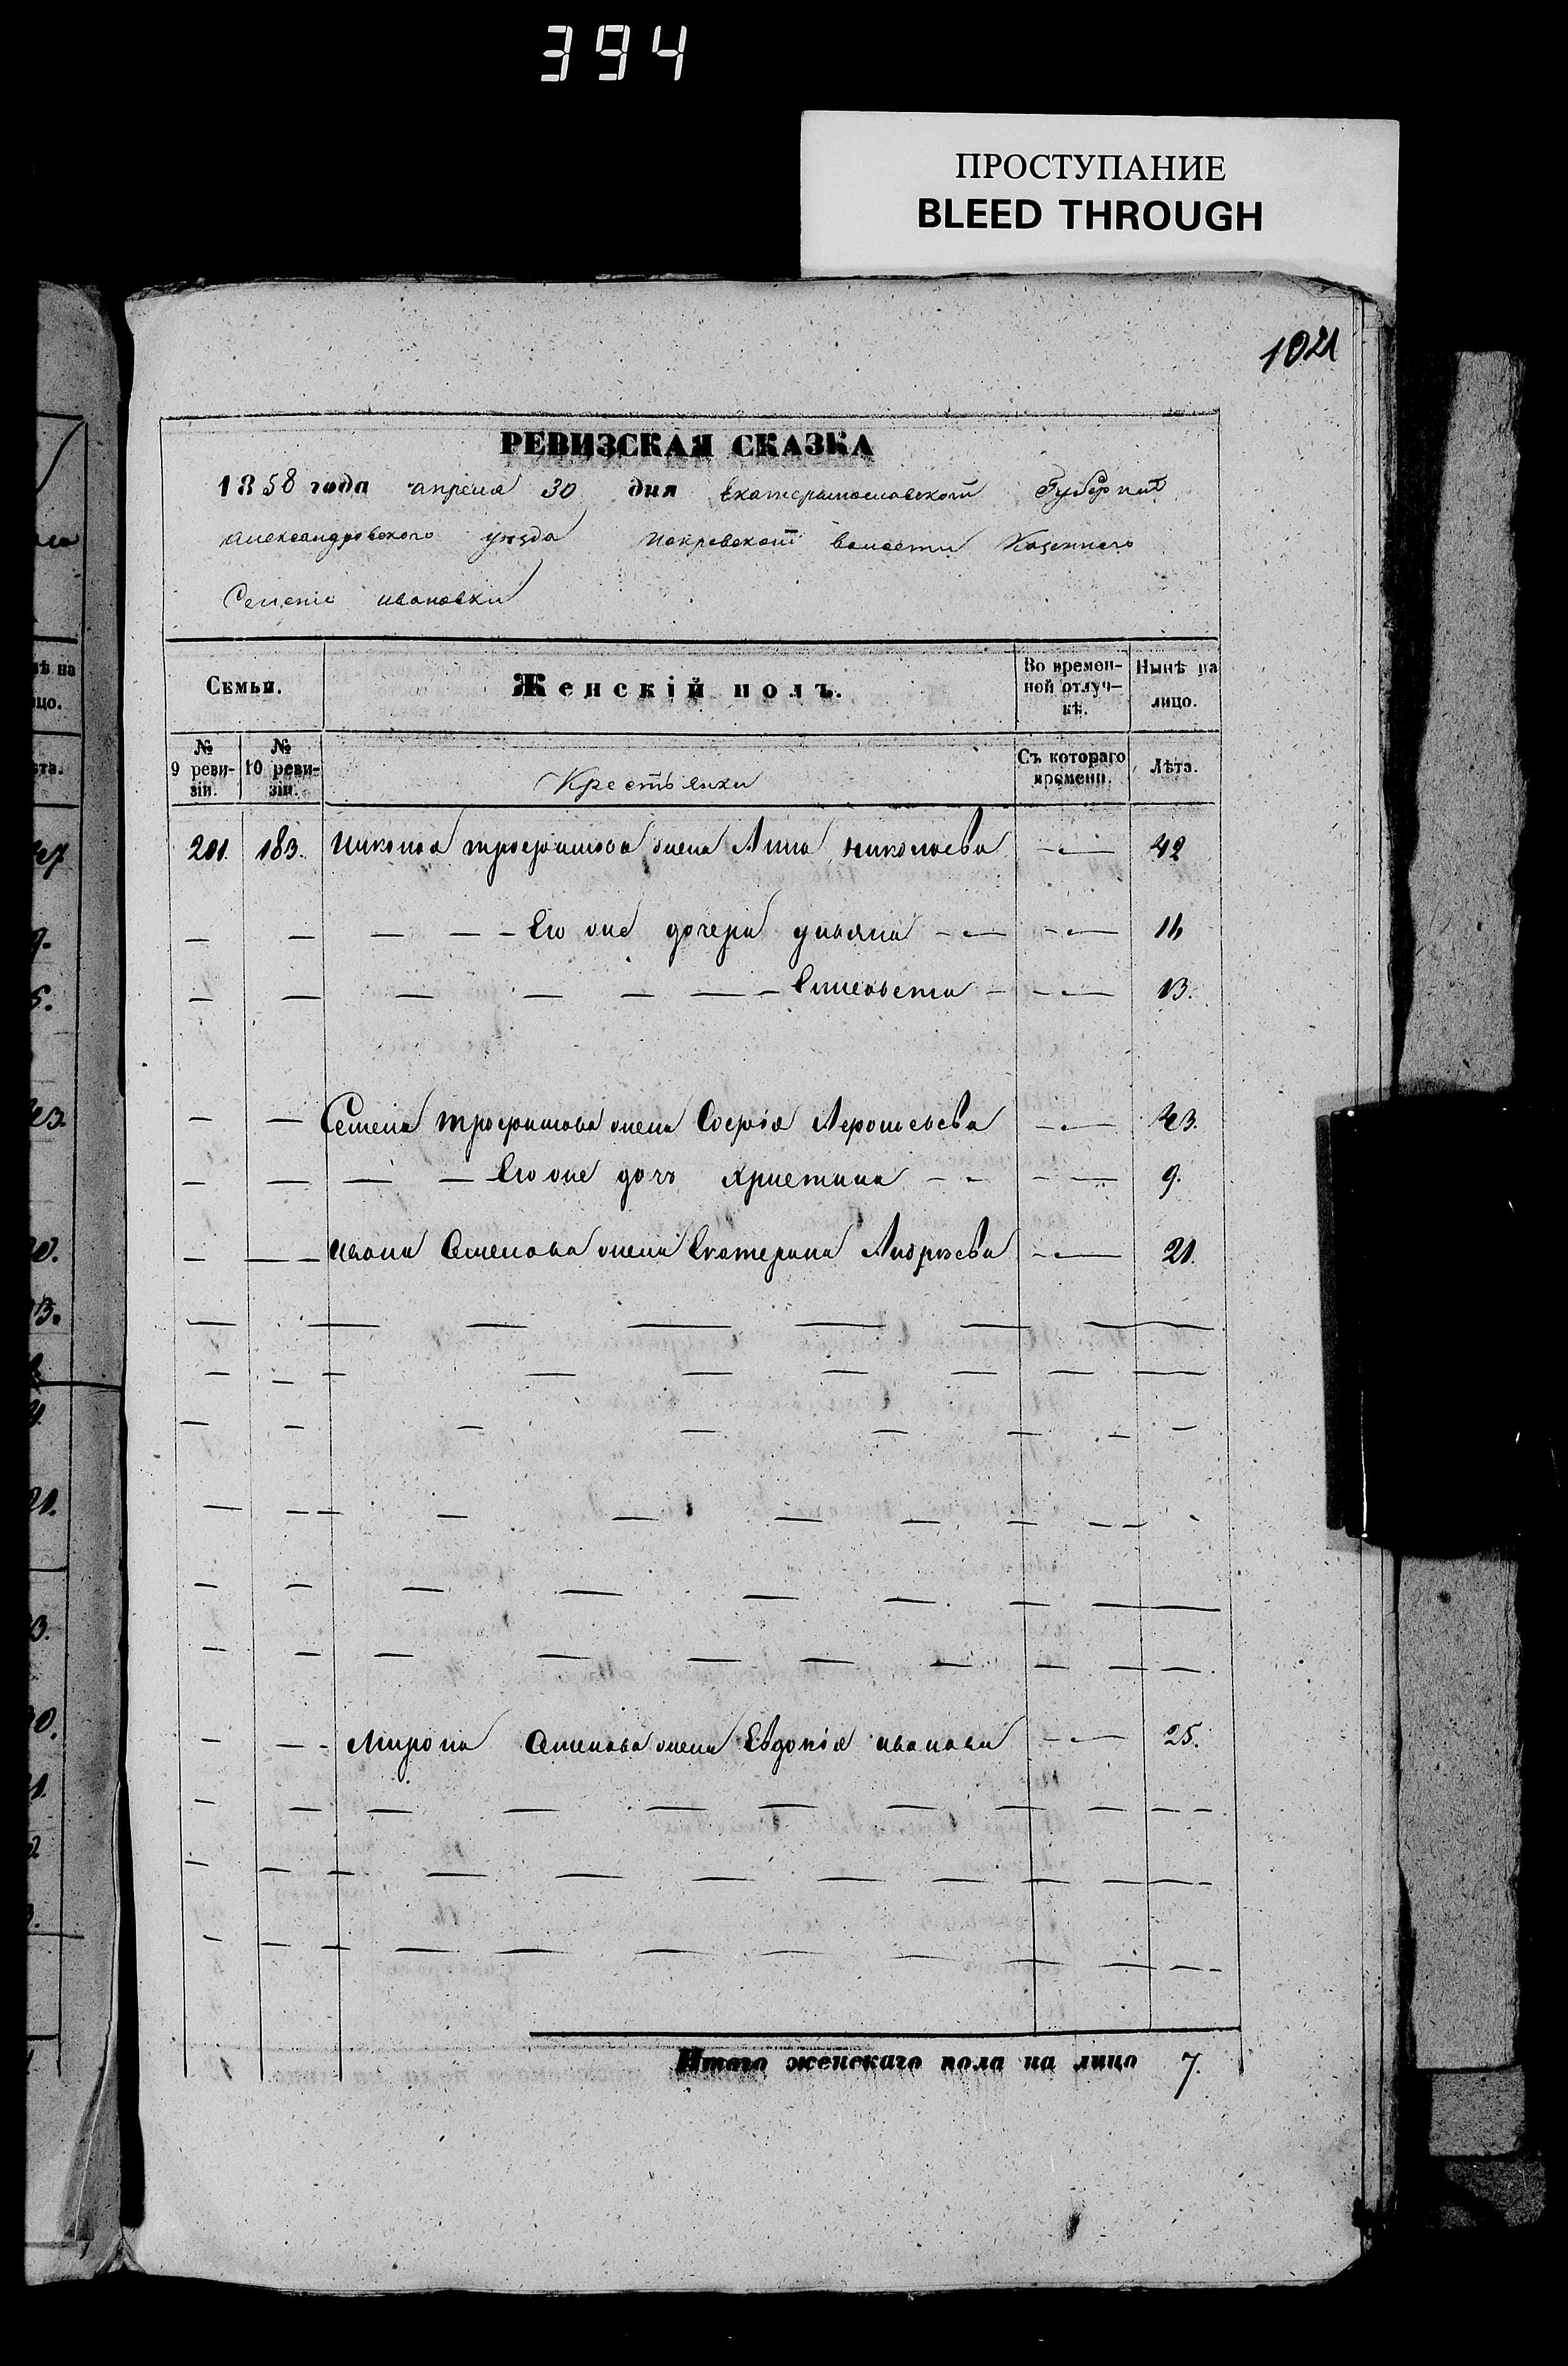 394
ПРОСТУПАНИЕ
BLEED THROUGH
1021
РЕВИЗСКАЯ СКАЗКА
1858 года апреля 30 дня Екатеринославской Губернии
Александровского уезда Покровской волости Казенного
Селения Ивановки
Семьи. Женскій полъ. Во времен-ной отлуч-кѣ. Нынѣ на лицо.
№ 9 реви-зіи. № 10 реви-зіи. Крестьянки Съ котораго времени. Лѣта.
201. 183. Никола трофимова жена Анна николаева — 42
— — — — — Его же дочери ульяна — — 16
— — — — — — — Елисавета — — 13.
— — Семена трофимова жена Софія — 43.
— — — — Его же дочь христина — — 9.
— — ивана Семенова жена Екатерина Андреева — 21.
— — Мирона Семенова жена Евдокія иванова — 25.
Итого женскаго пола на лицо 7.